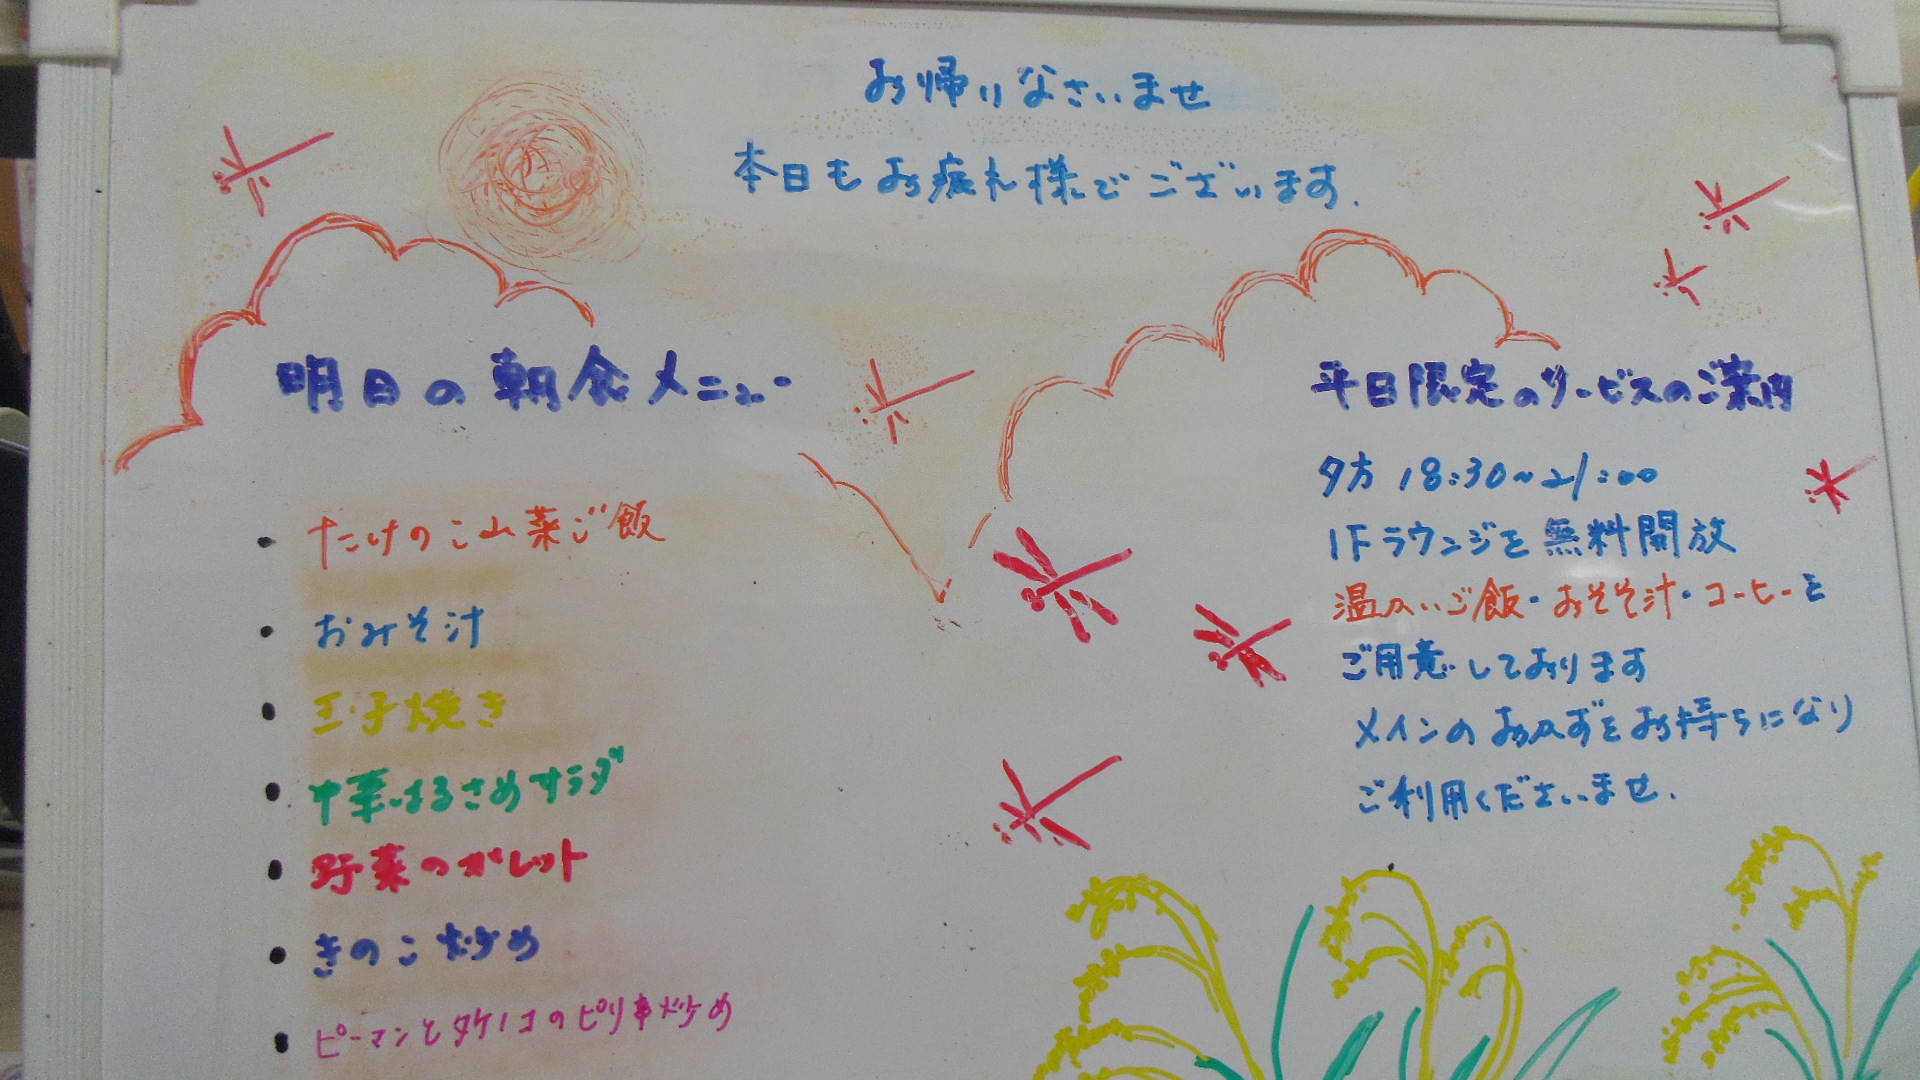 お帰りなさいませ
本日もお疲れ様でございます.
明日の朝食メニュー
・たけのこ山菜ご飯
・おみそ汁
・玉子焼き
・中華はるさめサラダ
・野菜のガレット
・きのこ炒め
・ピーマンとタケノコのピリ辛炒め
平日限定のサービスのご案内
夕方 18:30~21:00
1Fラウンジを無料開放
温かいご飯・おみそ汁・コーヒーを
ご用意しております
メインのおかずをお持ちになり
ご利用くださいませ.